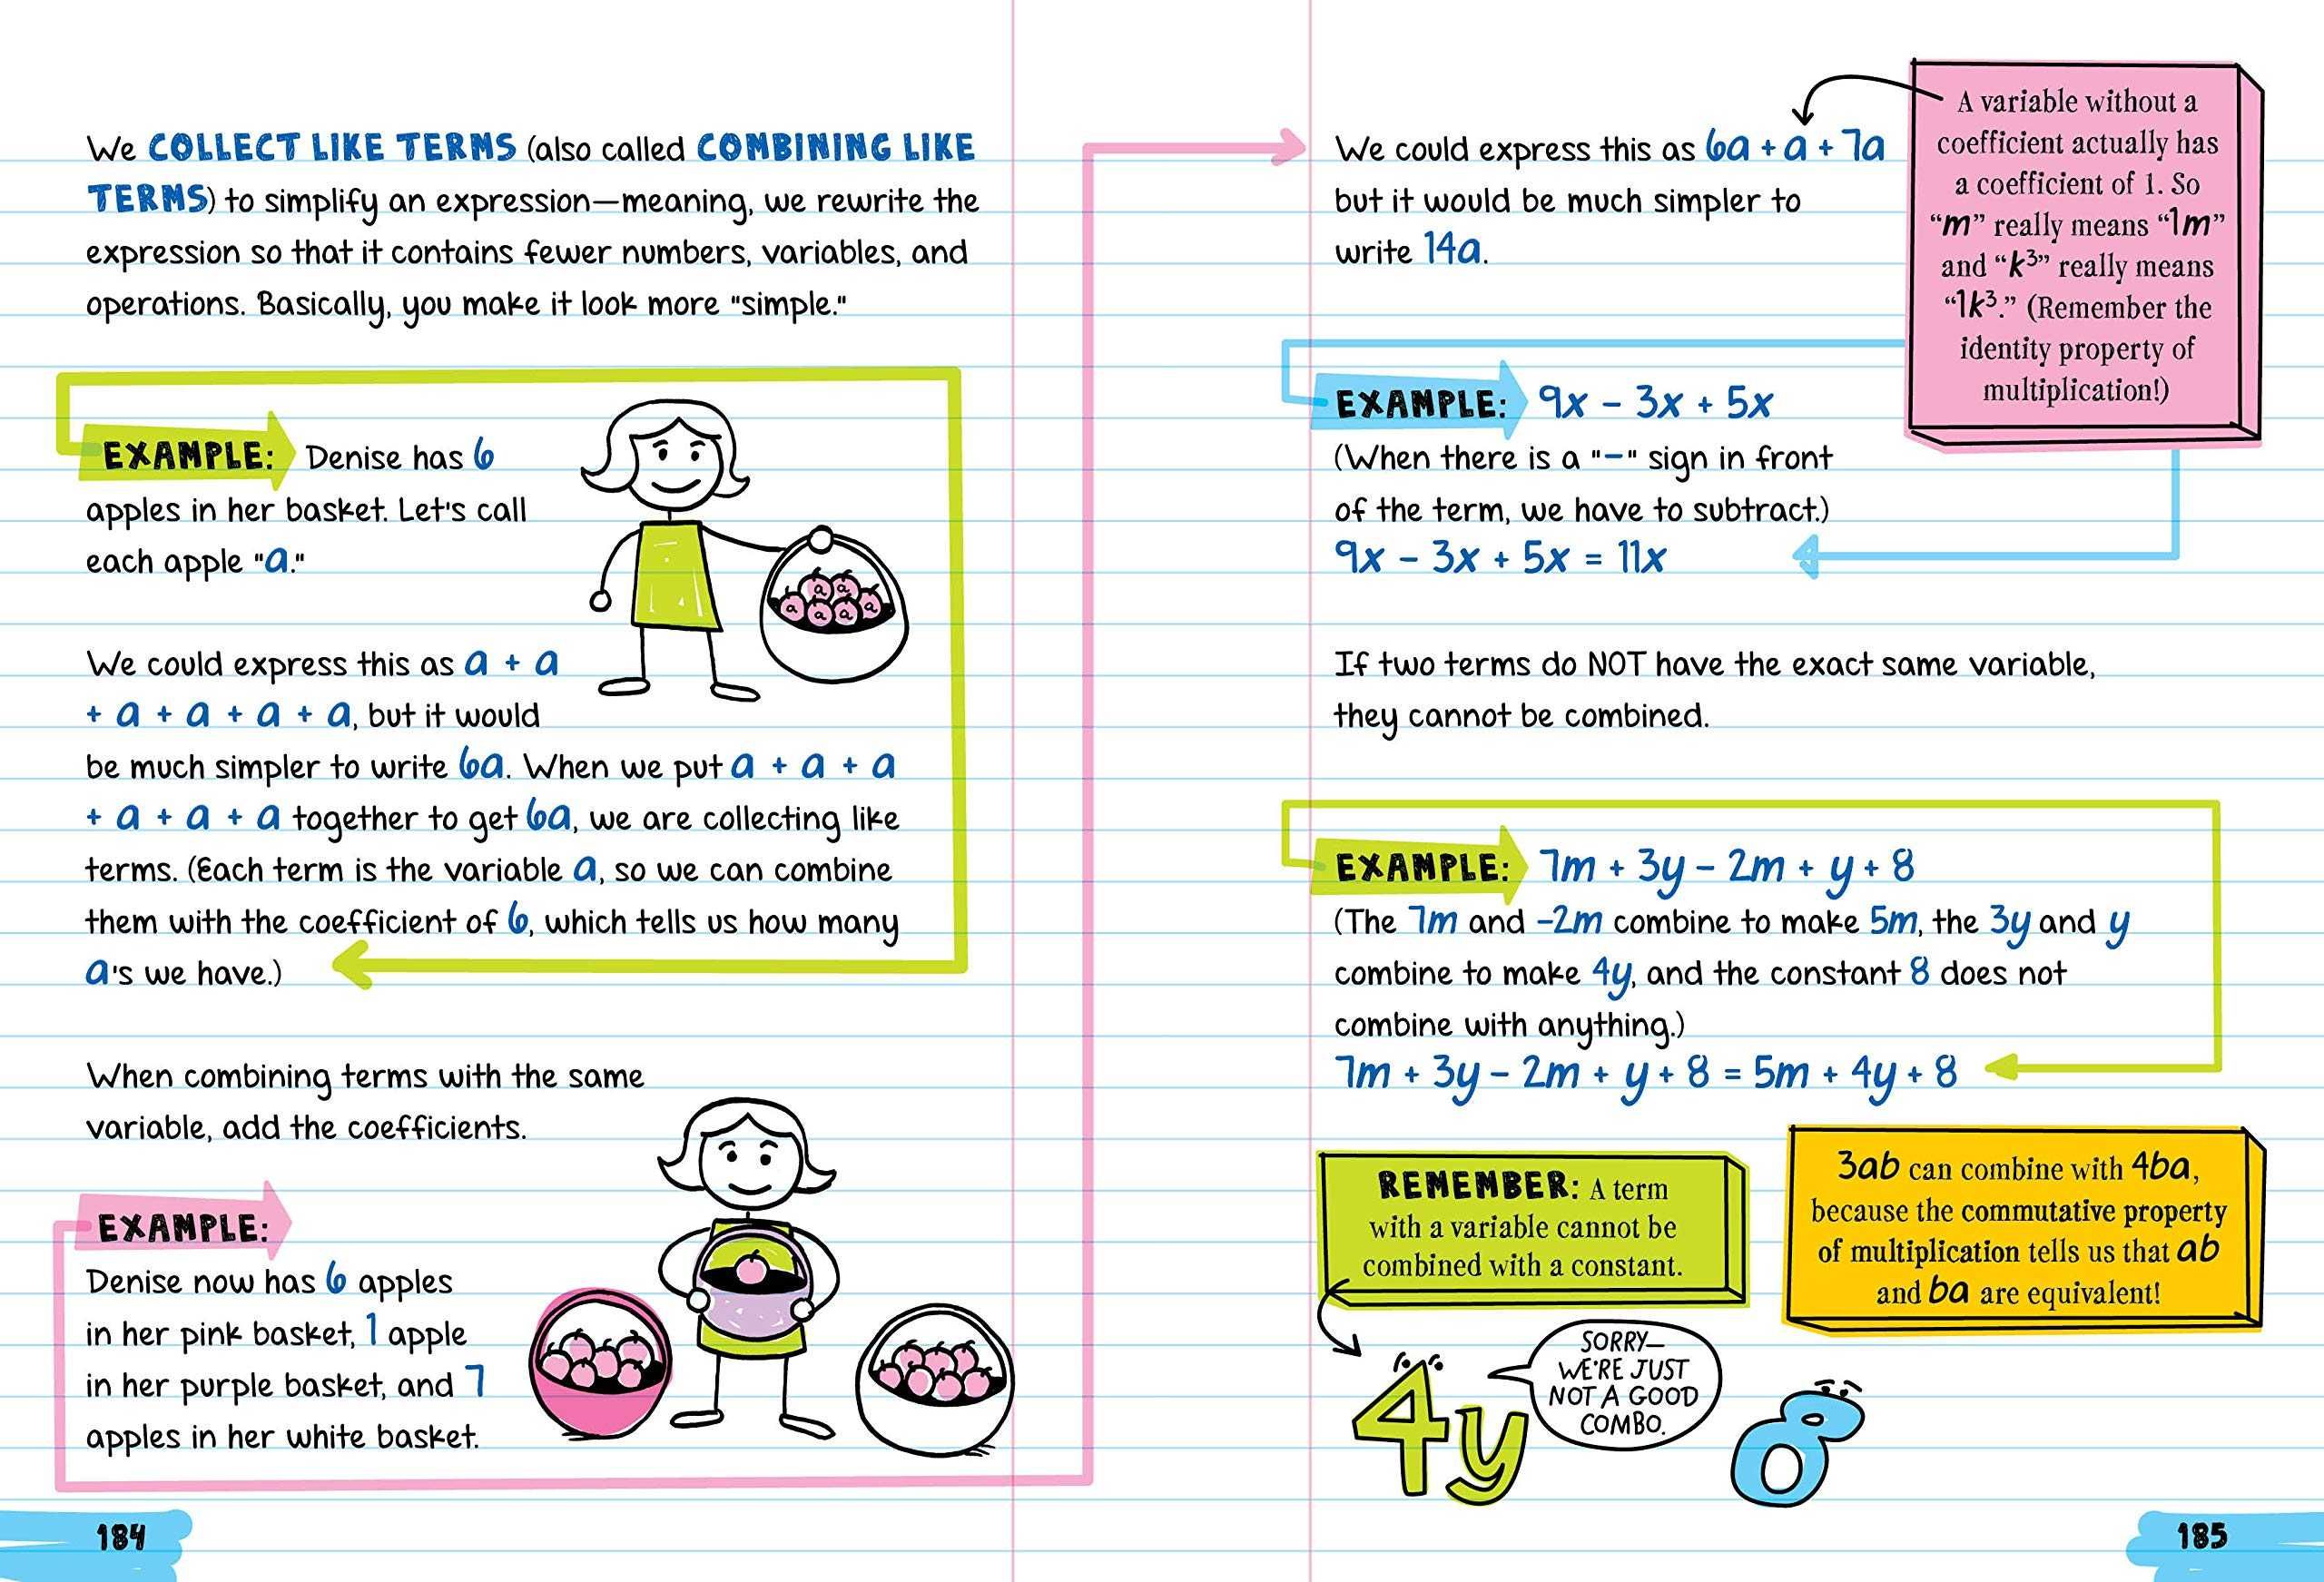 We COLLECT LIKE TERMS (also called COMBINING LIKE
TERMS) to simplify an expression—meaning, we rewrite the
expression so that it contains fewer numbers, variables, and
operations. Basically, you make it look more "simple."
EXAMPLE: Denise has 6
apples in her basket. Let's call
each apple "a."
a a
a a a a
We could express this as a + a
+ a + a + a + a, but it would
be much simpler to write 6a. When we put a + a + a
+ a + a + a together to get 6a, we are collecting like
terms. (Each term is the variable a, so we can combine
them with the coefficient of 6, which tells us how many
a's we have.)
When combining terms with the same
variable, add the coefficients.
EXAMPLE:
Denise now has 6 apples
in her pink basket, 1 apple
in her purple basket, and 7
apples in her white basket.
184
We could express this as 6a + a + 7a
but it would be much simpler to
write 14a.
A variable without a
coefficient actually has
a coefficient of 1. So
“m” really means “1m”
and “k³” really means
“1k³.” (Remember the
identity property of
multiplication!)
EXAMPLE: 9x – 3x + 5x
(When there is a "–" sign in front
of the term, we have to subtract.)
9x – 3x + 5x = 11x
If two terms do NOT have the exact same variable,
they cannot be combined.
EXAMPLE: 7m + 3y – 2m + y + 8
(The 7m and –2m combine to make 5m, the 3y and y
combine to make 4y, and the constant 8 does not
combine with anything.)
7m + 3y – 2m + y + 8 = 5m + 4y + 8
REMEMBER: A term
with a variable cannot be
combined with a constant.
3ab can combine with 4ba,
because the commutative property
of multiplication tells us that ab
and ba are equivalent!
4y
SORRY—
WE'RE JUST
NOT A GOOD
COMBO.
8
185